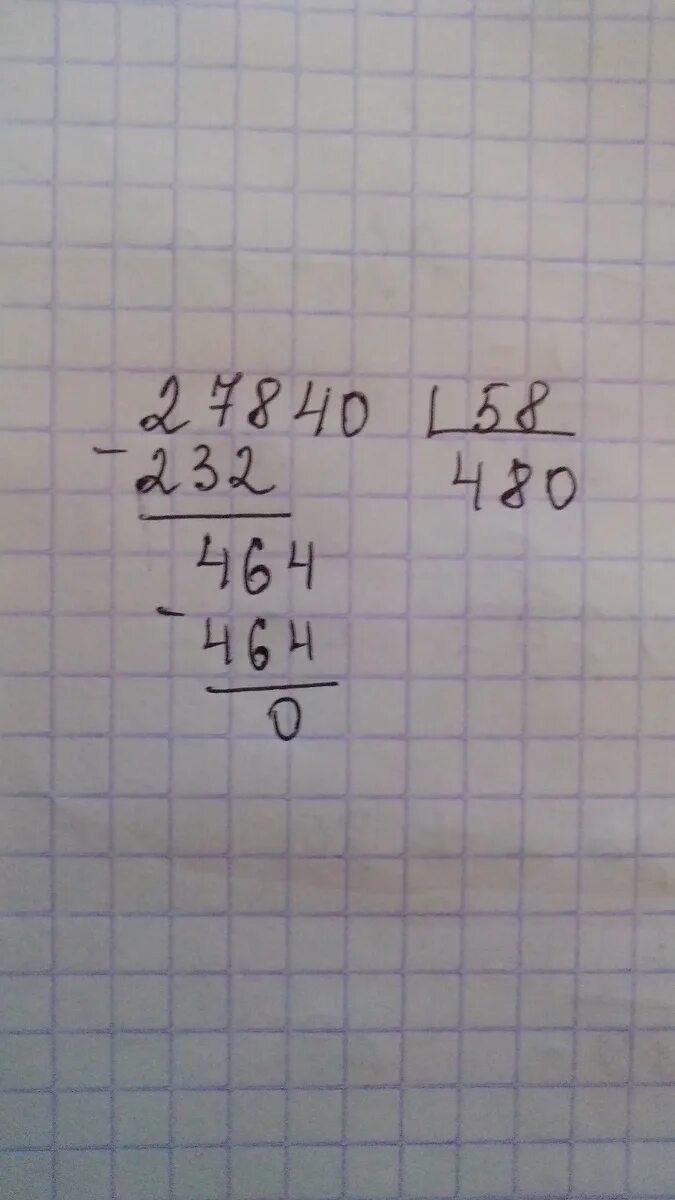 27840 58
- 232 480
464
- 464
0